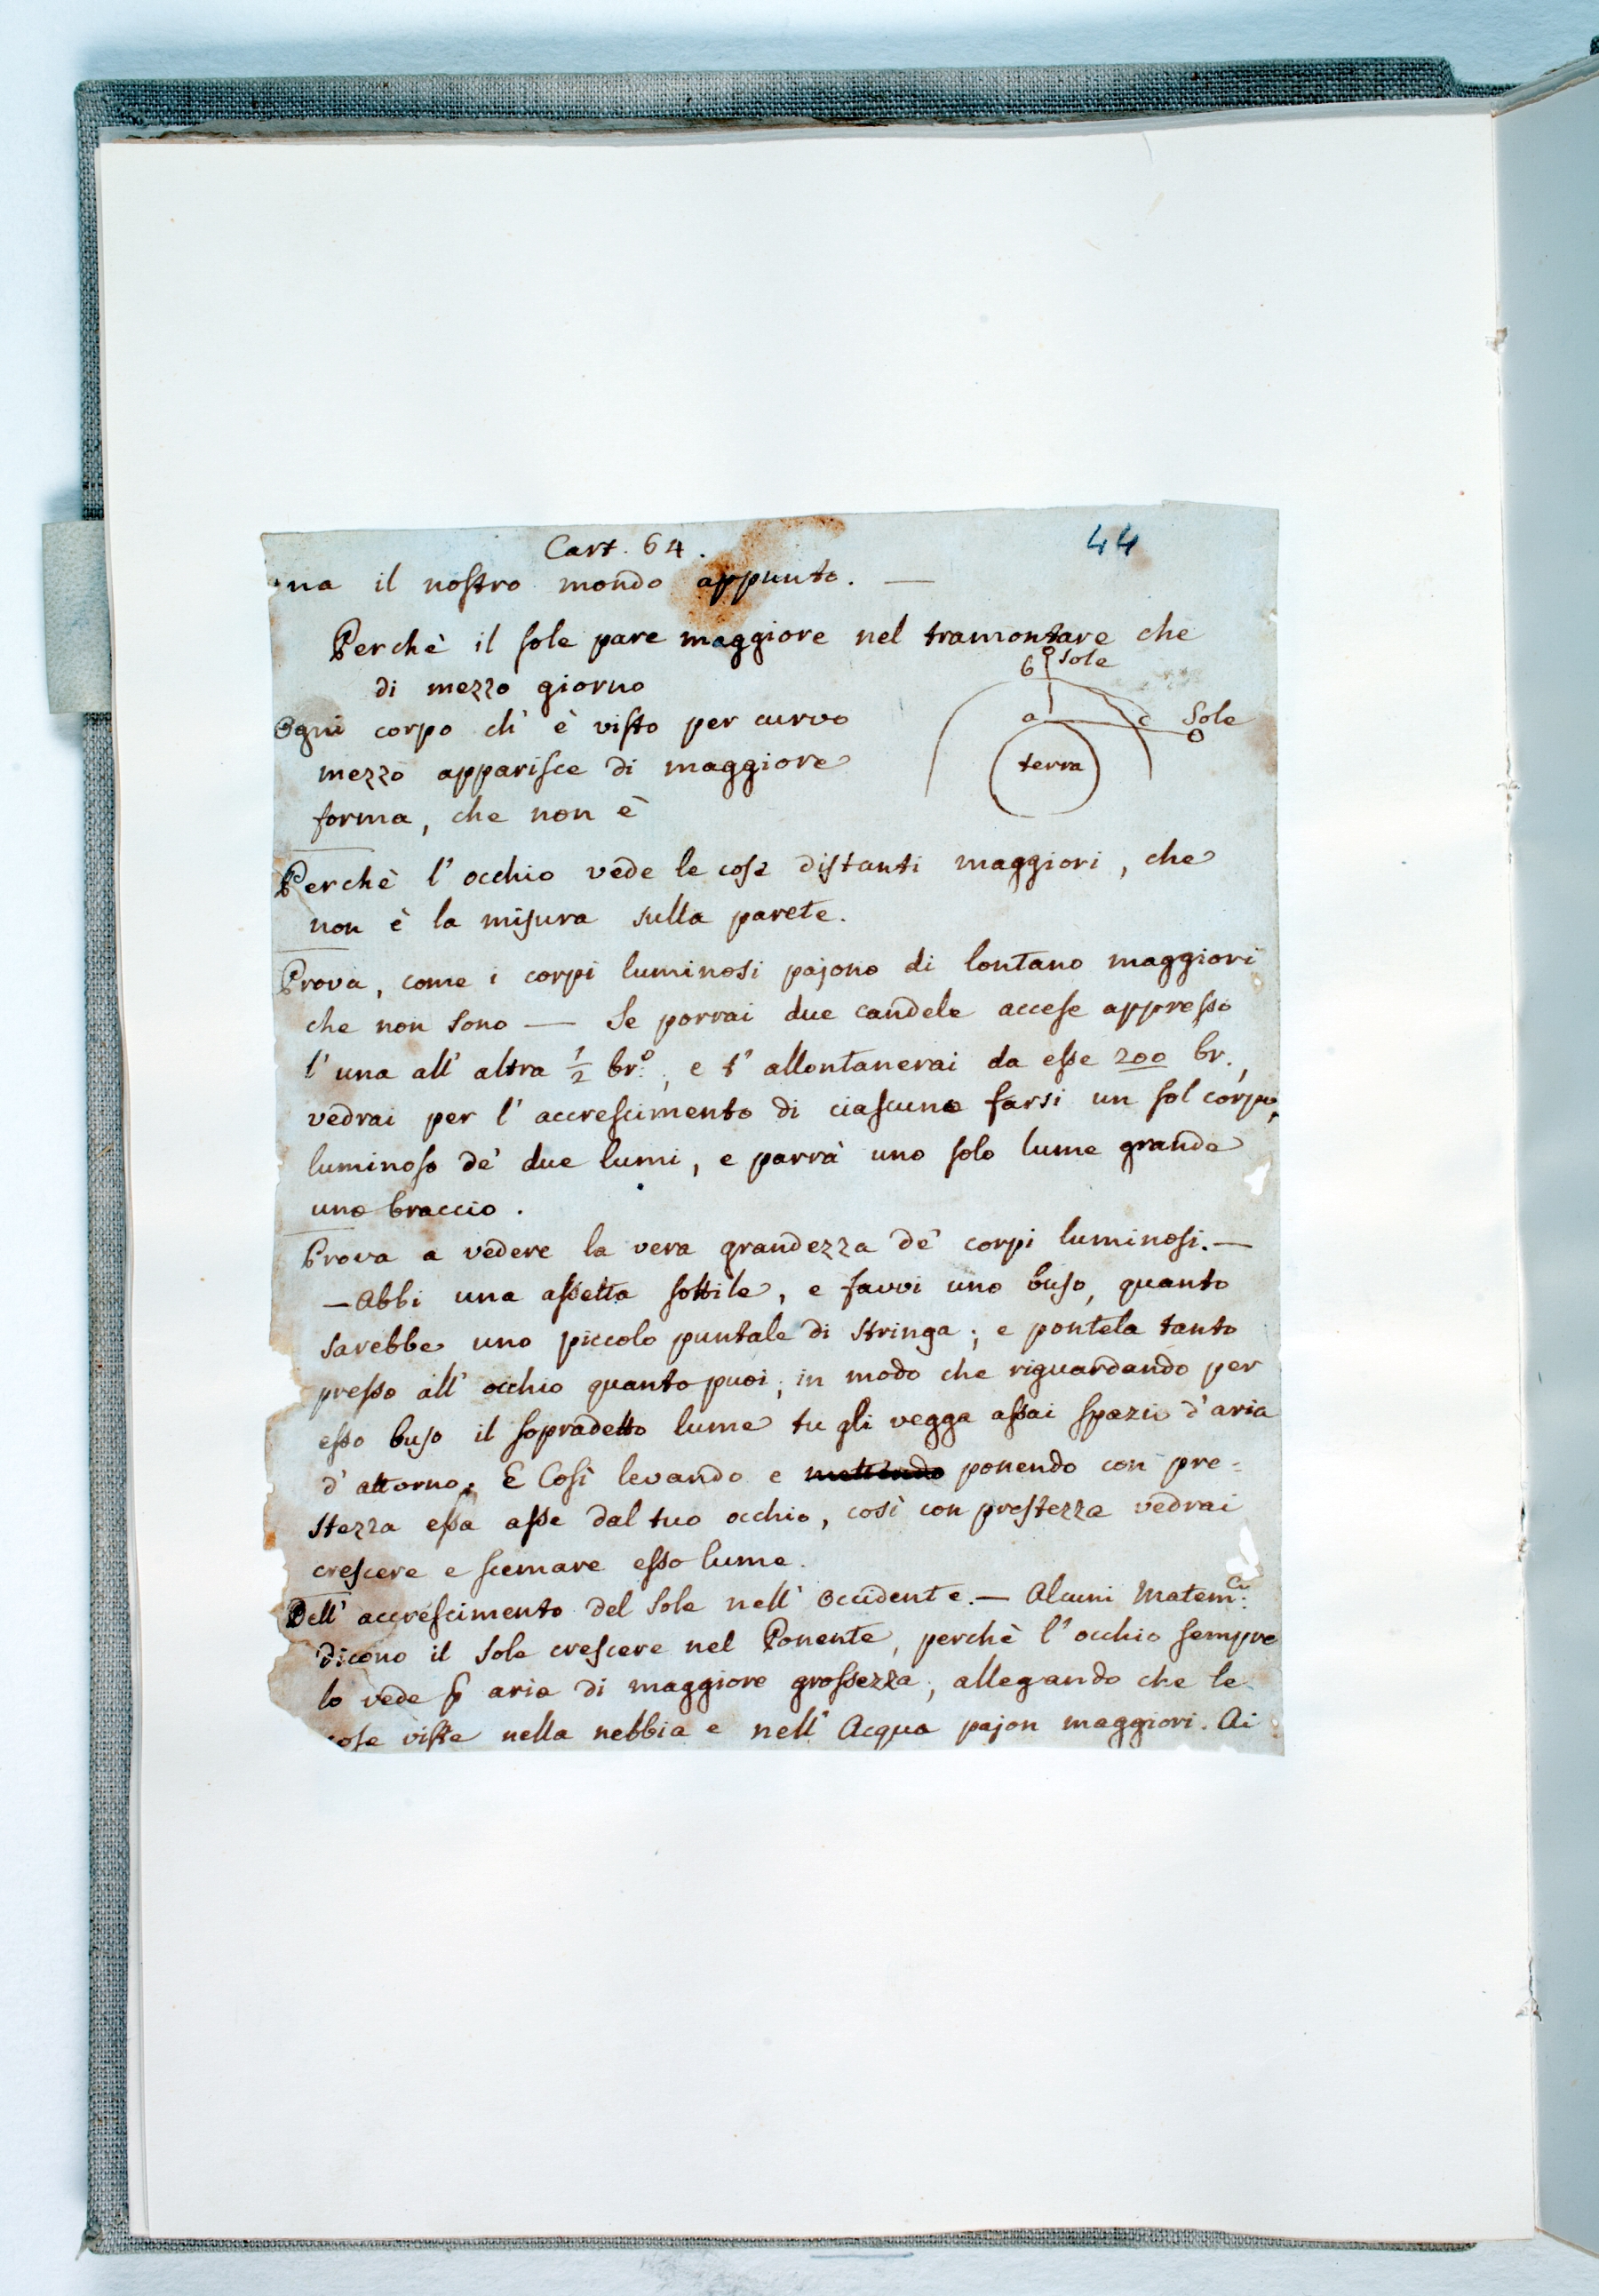 Cart. 64.
44
na il nostro mondo appunto. —
Perchè il sole pare maggiore nel tramontare che
di mezzo giorno
b Sole
a c Sole
terra
Ogni corpo ch' è visto per curvo
mezzo apparisce di maggiore
forma, che non è
Perchè l' occhio vede le cose distanti maggiori, che
non è la misura sulla parete.
Prova, come i corpi luminosi pajono di lontano maggiori
che non sono — Se porrai due candele accese appresso
l' una all' altra 1/2 br.º, e t' allontanerai da esse 200 br.,
vedrai per l' accrescimento di ciascuno farsi un sol corpo,
luminoso de' due lumi, e parrà uno solo lume grande
uno braccio.
Prova a vedere la vera grandezza de' corpi luminosi. —
— Abbi una assetta sottile, e favvi uno buso, quanto
sarebbe uno piccolo puntale di stringa; e pontela tanto
presso all' occhio quanto puoi; in modo che riguardando per
esso buso il sopradetto lume tu gli vegga assai spazii d' aria
d' attorno. E Così levando e mettendo ponendo con pre=
stezza essa asse dal tuo occhio, così con prestezza vedrai
crescere e scemare esso lume.
Dell' accrescimento del Sole nell' Occidente. — Alcuni Matem.ci
dicono il Sole crescere nel Ponente, perchè l' occhio sempre
lo vede ꝑ aria di maggiore grossezza, allegando che le
cose viste nella nebbia e nell' Acqua pajon maggiori. Ai